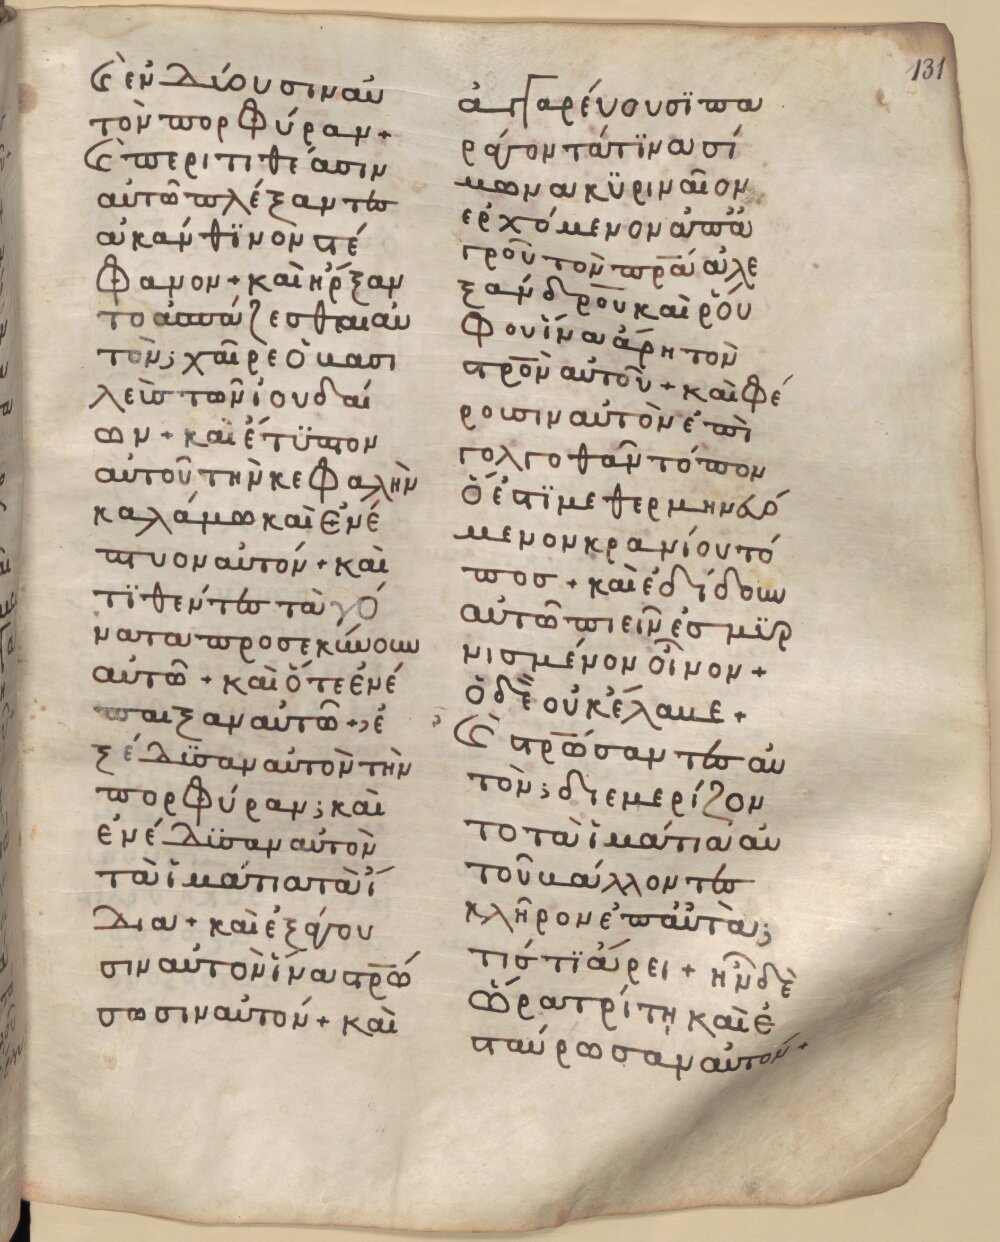 131
Ϛ ἐνδύουσιν αὐ
τὸν πορφύραν +
Ϛ περιτιθέασιν
αὐτῶ πλέξαντες
ἀκάνθϊνον στέ
φανον + καὶ ἤρξαν
το ἀσπάζεσθαι αὐ
τὸν ; χαῖρε ὁ βασι
λεὺς τῶν ἰουδαί
ων + καὶ ἔτϋπτον
αὐτοῦ τὴν κεφαλὴν
καλάμω καὶ ἐνέ
πτυον αὐτόν + καὶ
τϊθέντες τὰ γό
νατα προσεκύνουν
αὐτῶ + καὶ ὅτε ἐνέ
παιξαν αὐτῶ + ἐ
ξέδϋσαν αὐτὸν τὴν
πορφύραν ; καὶ
ἐνέδϋσαν αὐτὸν
τὰ ἱμάτια τὰ ἴ
δια + καὶ ἐξάγου
σιν αὐτὸν ἵνα στρώ
σωσιν αὐτόν + καὶ
ἀγγαρέυουσϊ πα
ράγοντά τϊνα σί
μωνα κϋριναῖον
ἐρχόμενον ἀπὰ
γροῦ τὸν πρα ἀλε
ξάνδρου καὶ ῥού
φου ἵνα ἄρη τὸν
στρον αὐτοῦ + καὶ φέ
ρουσιν αὐτὸν ἐπὶ
γολγοθᾶν τόπον
ὅ ἐστϊ μεθερμηνευό
μενον κρανίου τό
πος + καὶ ἐδίδουν
αὐτῶ πιεῖν ἐσμϋρ
νισμένον οἶνον +
ὁ δὲ οὐκ ἔλαβε +
Ϛ στρώσαντες αὐ
τὸν ; διεμερίζον
το τὰ ἱμάτια αὐ
τοῦ βάλλοντες
κλῆρον ἐπ αὐτὰ ;
τίς τϊ ἄρει + ἦν δὲ
ὥρα τρίτη καὶ ἐ
σταύρωσαν αὐτόν +